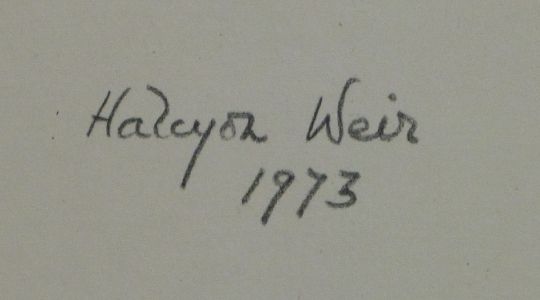 Halcyon Weir
1973